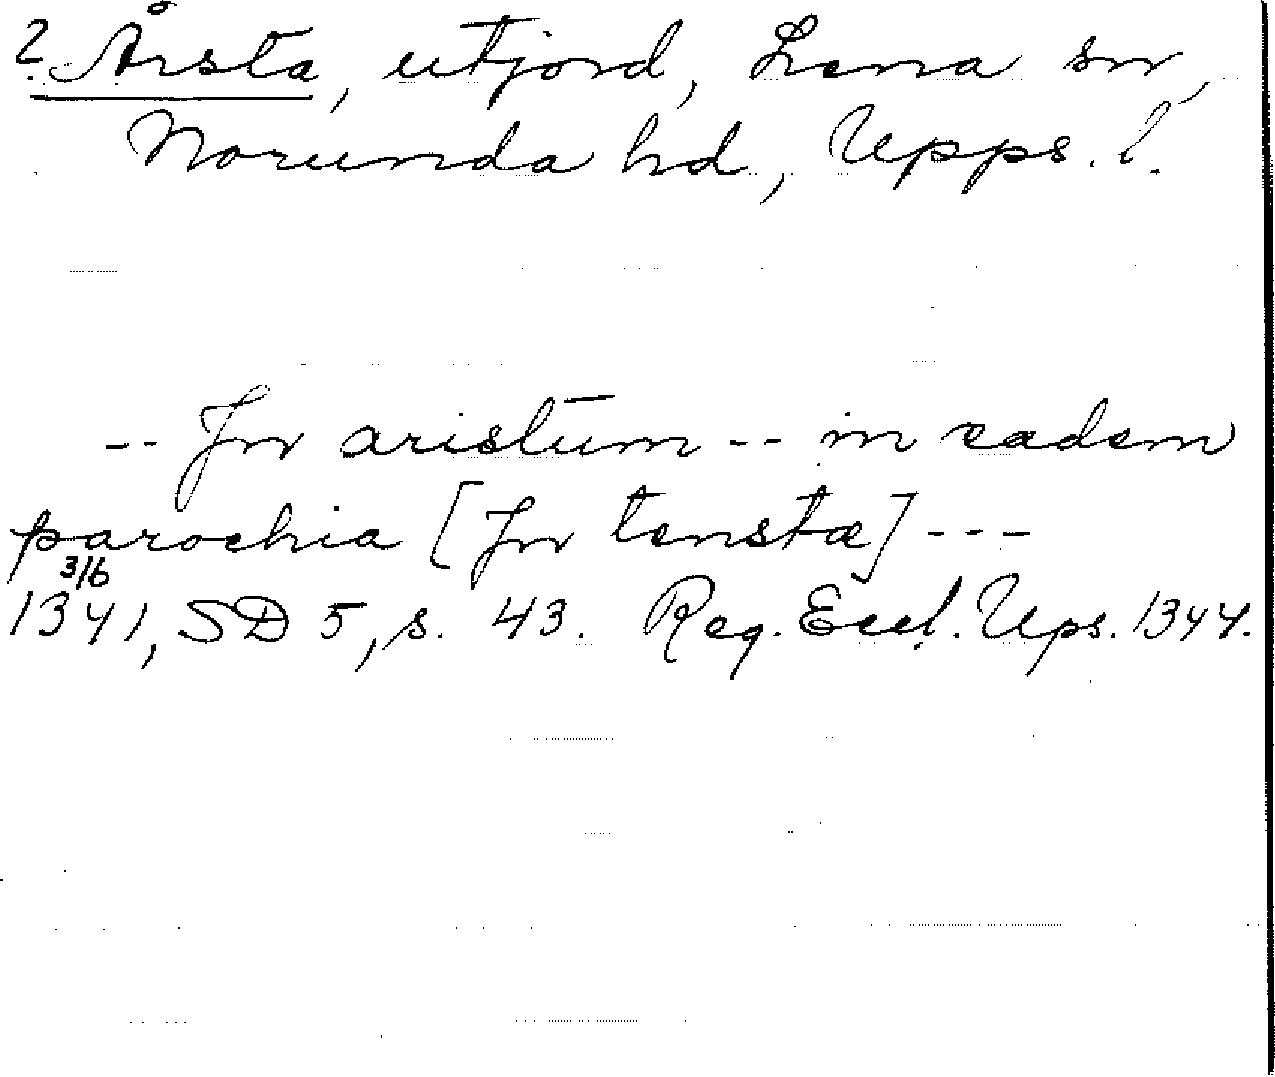 ? Årsta, utjord, Lena sn,
Norunda hd, Upps. l.
-- Jn aristum -- in eadem
parochia [Jn tensta] ---
3/6
1341, SD 5, s. 43. Reg. Eccl. Ups. 1344.